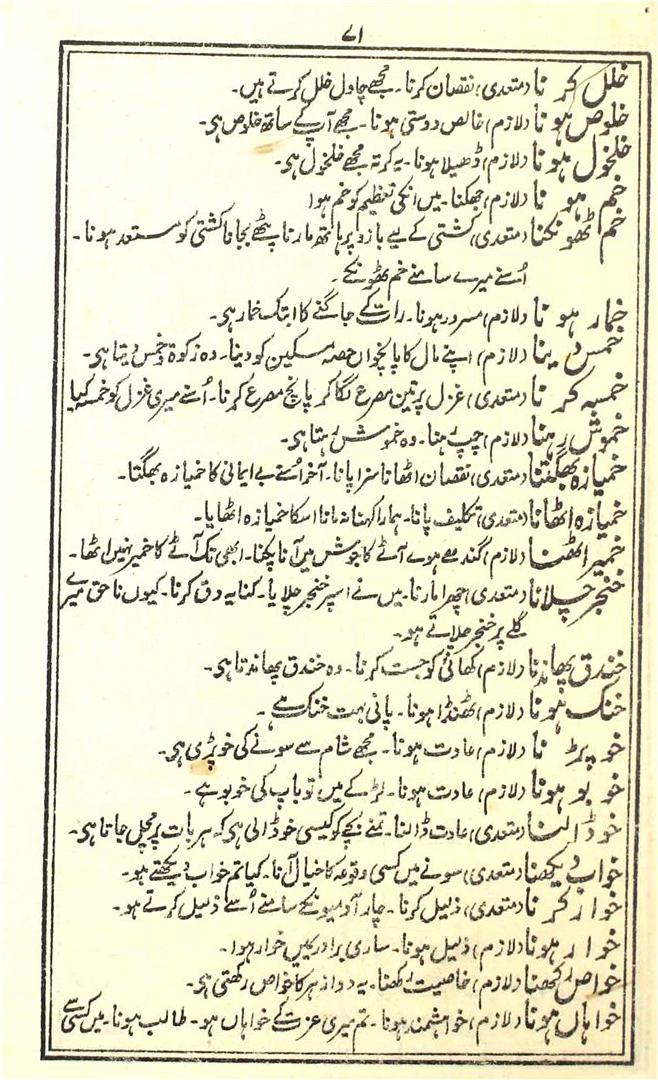 ۷۱
خلل کر نا (متعدی) نقصان کرنا۔ مجھے چاول خلل کرتے ہیں۔
خلوص ہونا (لازم) خالص دوستی ہونا۔ مجھے آپ کے ساتھ خلوص ہی۔
خلخول ہونا (لازم) ڈھیلا ہونا۔ یہ کرتہ مجھے خلخول ہی۔
خم ہو نا (لازم) جھکنا۔ میں انکی تعظیم کو خم ہوا
خم ٹھونکنا (متعدی) کشتی کے لیے بازو پر ہاتھ مارنا پٹھے بجانا کشتی کو مستعد ہونا۔
اُسنے میرے سامنے خم ٹھونکے۔
خمار ہو نا (لازم) مسرور ہونا۔ رات کے جاگنے کا ابتک خمار ہی۔
خمس دینا (لازم) اپنے مال کا پانچواں حصہ مسکین کو دینا۔ وہ زکوۃ و خمس دیتا ہی۔
خمسہ کر نا (متعدی) غزل پر تین مصرع لگا کر پانچ مصرع کرنا۔ اُسنے میری غزل کو خمسہ کیا
خموش رہنا (لازم) چپ رہنا۔ وہ خموش رہتا ہی۔
خمیازہ بھگتنا (متعدی) نقصان اٹھانا سزا پانا۔ آخر اُسنے بے ایمانی کا خمیازہ بھگتا۔
خمیازہ اٹھانا (متعدی) تکلیف پانا۔ ہمارا کہنا نہ مانا اسکا خمیازہ اٹھایا۔
خمیر اٹھنا (لازم) گندھے ہوے آٹے کا جوش میں آنا پکنا۔ ابھی تک آٹے کا خمیر نہیں اٹھا۔
خنجر چلانا (متعدی) چھرا مارنا۔ میں نے اسپر خنجر چلایا۔ کنایہ دق کرنا۔ کیوں ناحق میرے
گلے پر خنجر چلاتے ہو۔
خندق پھاندنا (لازم) کھائی کو جست کرنا۔ وہ خندق پھاندتا ہی۔
خنک ہونا (لازم) ٹھنڈا ہونا۔ پانی بہت خنک ہے۔
خو پڑ نا (لازم) عادت ہونا۔ مجھے شام سے سونے کی خو پڑی ہی۔
خو بو ہونا (لازم) عادت ہونا۔ لڑکے میں تو باپ کی خو بو ہے۔
خو ڈالنا (متعدی) عادت ڈالنا۔ تمنے بچے کو کیسی خو ڈالی ہی کہ ہر بات پر مچل جاتا ہی۔
خواب دیکھنا (متعدی) سونے میں کسی وقوعہ کا خیال آنا۔ کیا تم خواب دیکھتے ہو۔
خوار کر نا (متعدی) ذلیل کرنا۔ چار آدمیونکے سامنے اُسے ذلیل کرتے ہو۔
خوار ہونا (لازم) ذلیل ہونا۔ ساری برادر میں خوار ہوا۔
خواص رکھنا (لازم) خاصیت رکھنا۔ یہ دوا زہر کا خواص رکھتی ہی۔
خواہاں ہونا (لازم) خواہشمند ہونا۔ تم میری عزت کے خواہاں ہو۔ طالب ہونا۔ میں کسی سے